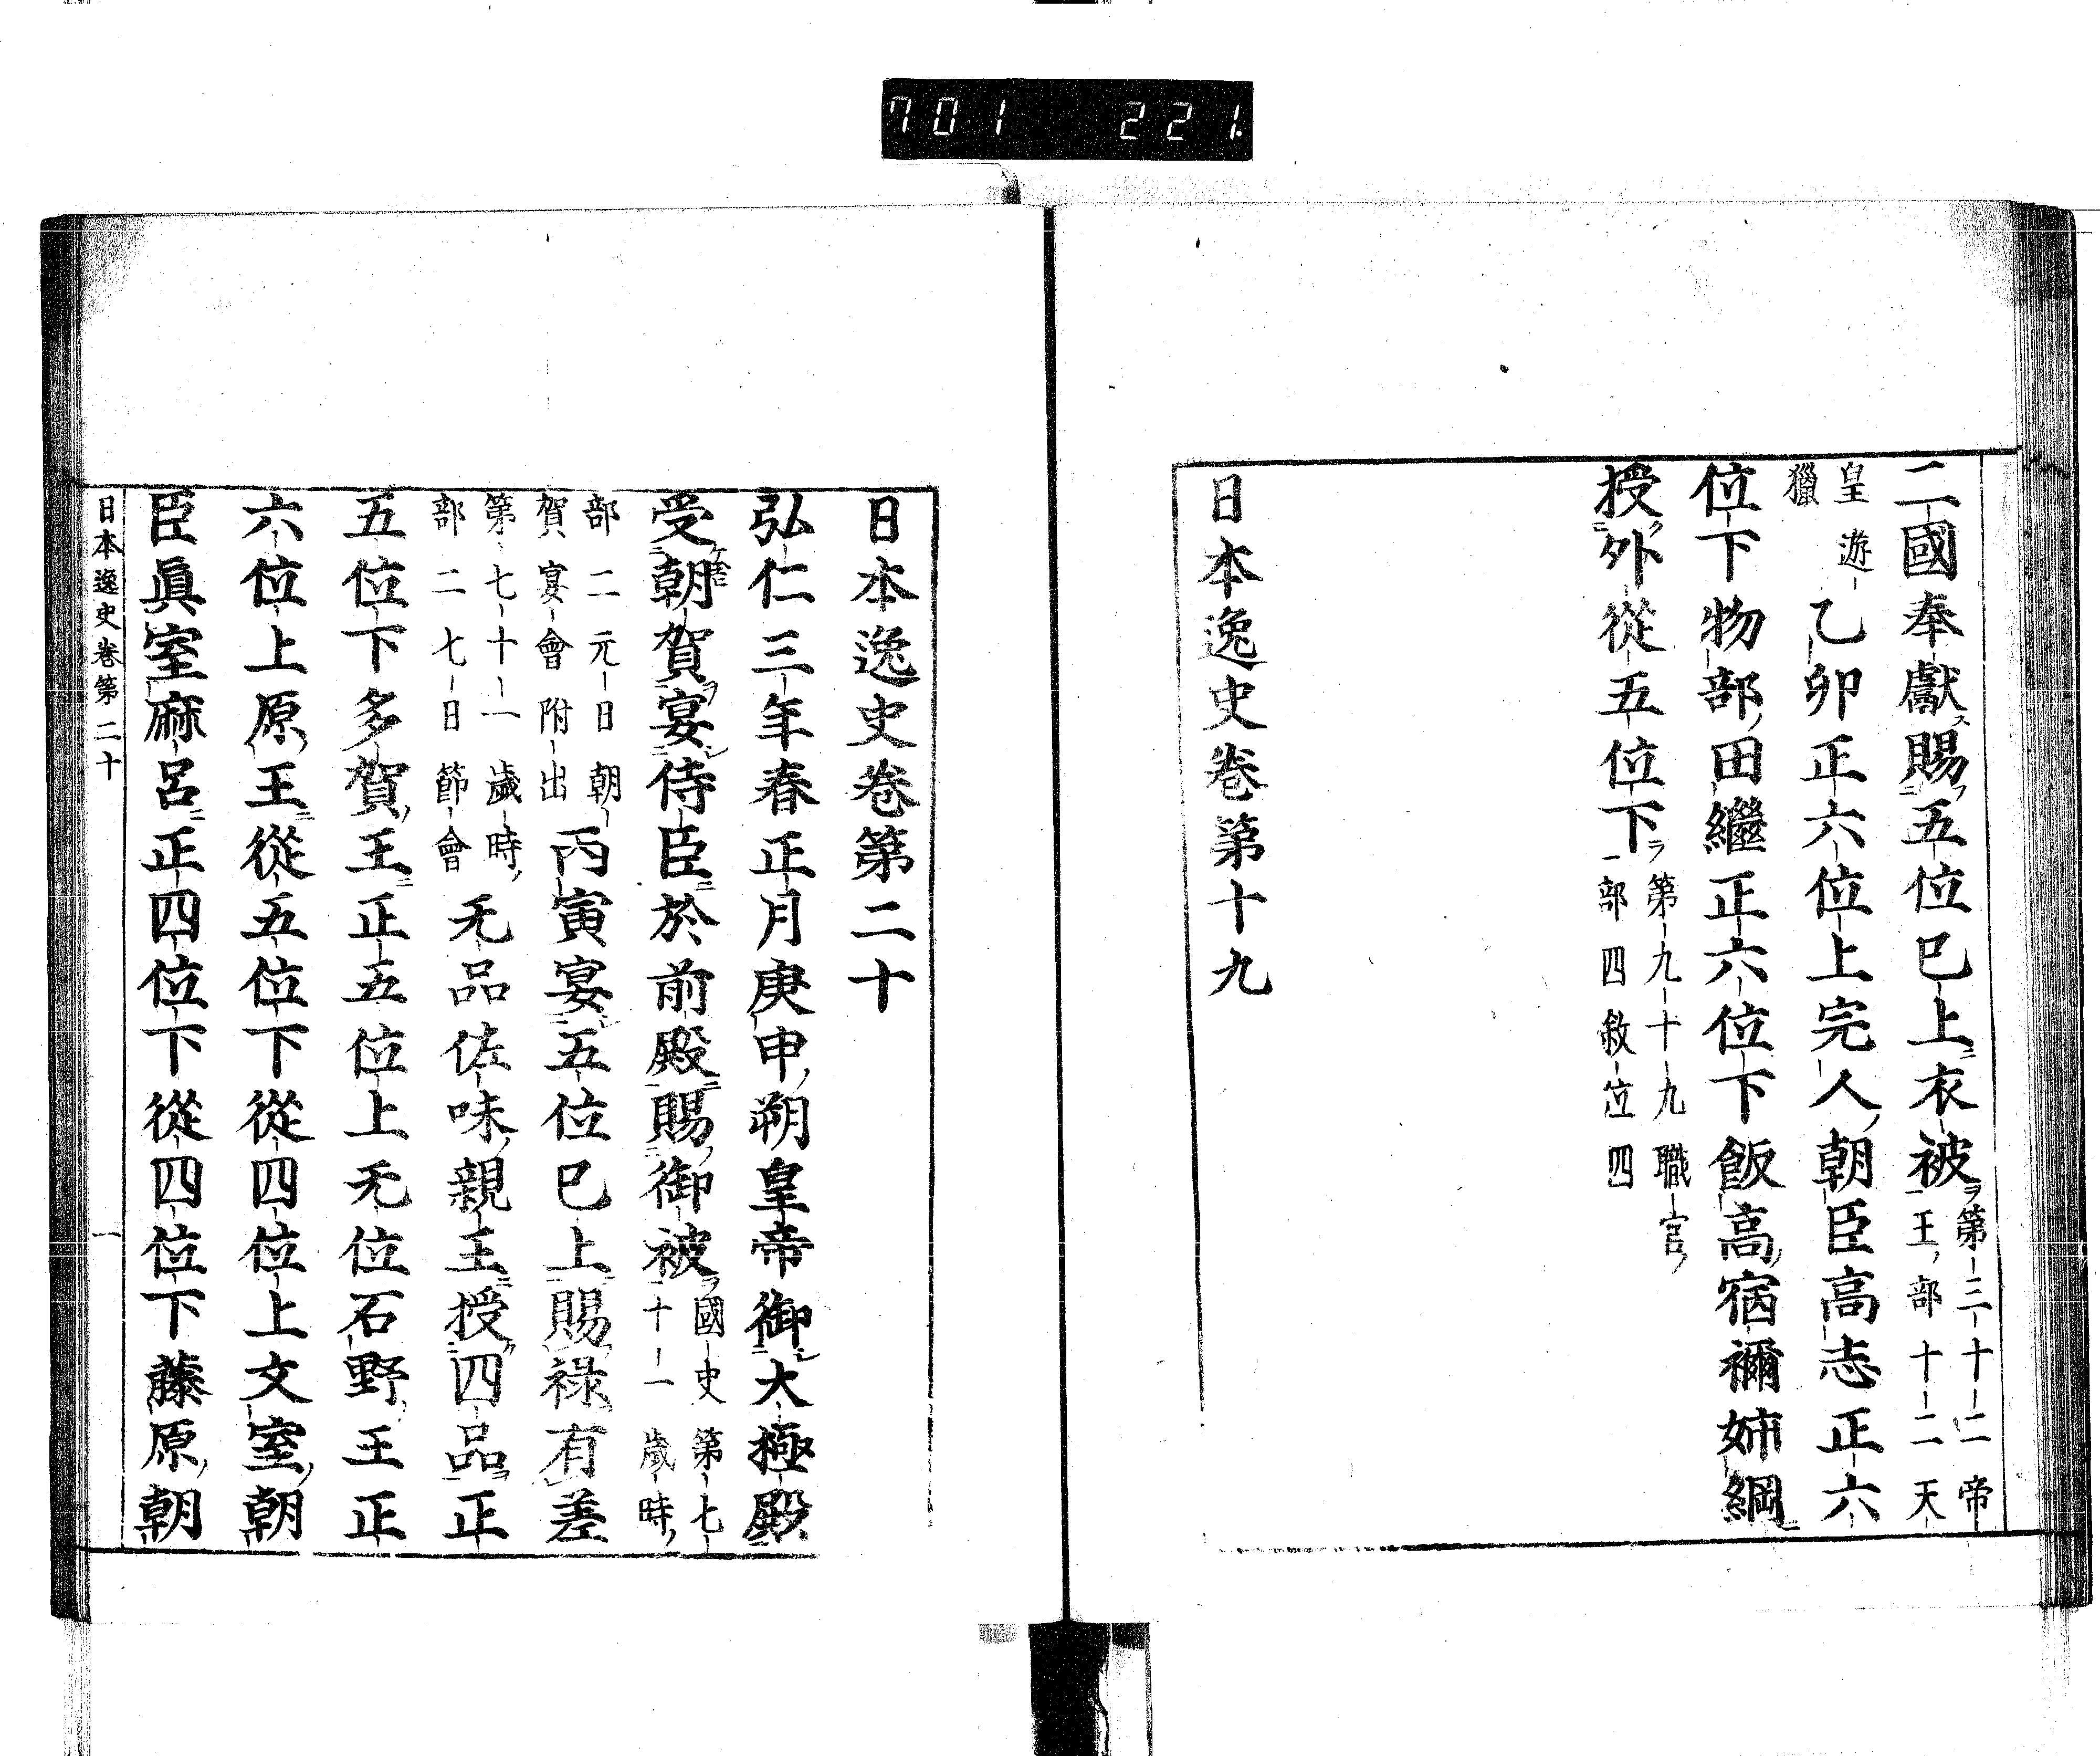 701 221.
二國奉獻賜五位已上衣被第三十二帝王部十二天
皇遊獵乙卯正六位上完人朝臣高志正六
位下物部田繼正六位下飯高宿禰姉綱
授外從五位下第九十九職官部四敘位四
日本逸史卷第十九
日本逸史卷第二十
弘仁三年春正月庚申朔皇帝御大極殿
受朝賀宴侍臣於前殿賜御被國史第七十一歳時
部二元日朝賀宴會附出丙寅宴五位已上賜祿有差
第七十一歳時部二七日節會无品佐味親王授四品正
五位下多賀王正五位上无位石野王正
六位上原王從五位下從四位上文室朝
臣眞室麻呂正四位下從四位下藤原朝
日本逸史卷第二十 一